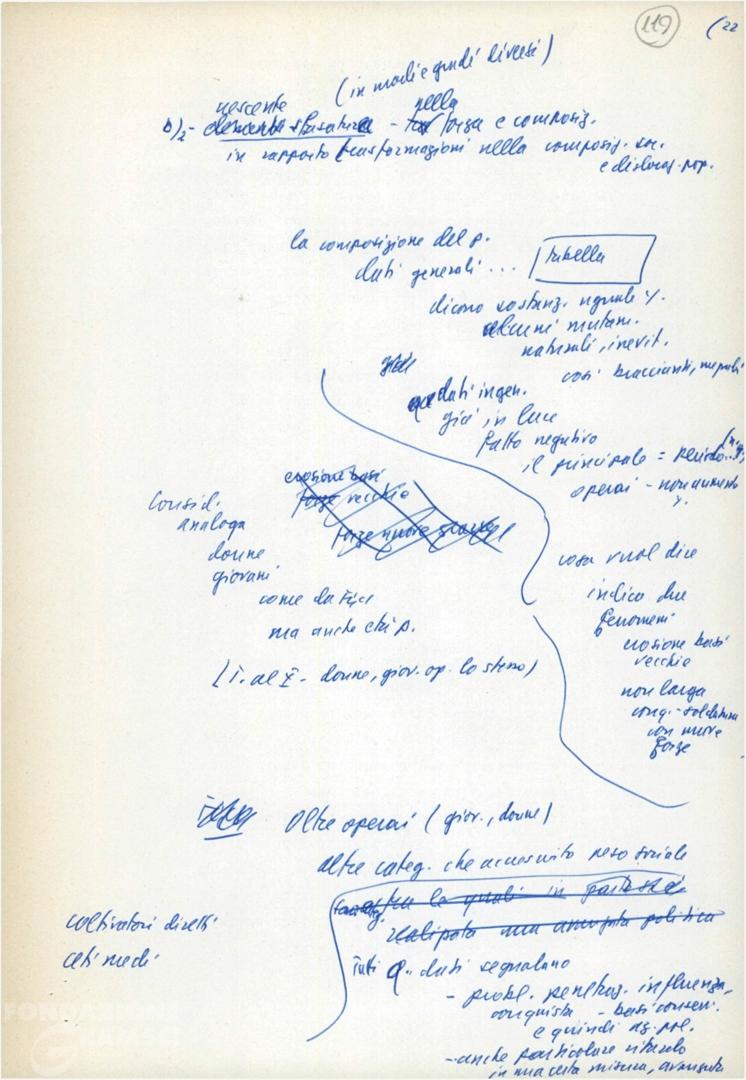 119 (22
(in modi e gradi diversi)
crescente nella
b)2- elemento sfasatura - forza e composiz.
in rapporto trasformazioni nella composiz. soc.
e disloc. pop.
la composizione del p.
dati generali ... tabella
dicono sostanz. uguale %.
alcuni mutam.
naturali, inevit.
così braccianti, mezzadri
dati in gen.
già in luce
fatto negativo
il principale = perido
operai - non aumento
%.
erosione basi
forze vecchie
forze nuove
Consid.
analoga
donne
giovani
come da Fgci
ma anche chi p.
(I. al X - donne, giov. op. lo stesso)
cosa vuol dire
indica due
fenomeni
erosione basi
vecchie
non larga
conq. - saldatura
con nuove
forze
Oltre operai (giov., donne)
altre categ. che accresciuto peso sociale
fra le quali in parte s'è
realizzata una avanzata politica
coltivatori diretti
ceti medi
Tutti q. dati segnalano
- probl. penetraz. influenza,
conquista - basi consensi.
e quindi az. pol.
- anche particolare ritardo
in una certa misura, avanzata
FONDAZIONE
GRAMSCI